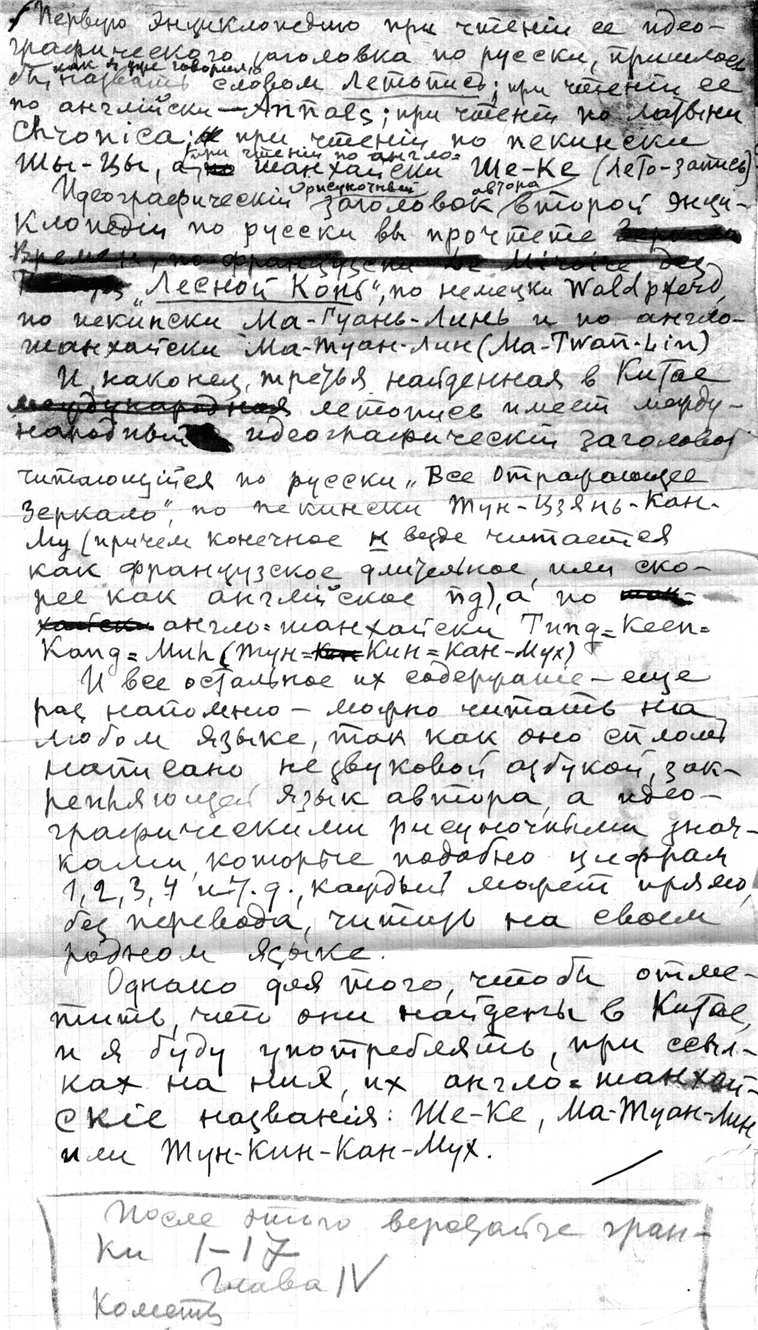 Первую энциклопедию при чтенiи ее идео-
графического заголовка по русски, пришлось
бы, как я уже говорил, назвать словом Летопись; при чтенiи ее
по англiйски — Annals; при чтенiи по латыни
Chronica; при чтенiи по пекински
Шы-Цы, а при чтенiи по англо-
шанхайски Ше-Ке (Лето-запись)
Идеографическiй рисуночный заголовок автора второй энци-
клопедiи по русски вы прочтете
Времен, по французски
„Лесной Конь", по немецки Waldpferd,
по пекински Ма-Гуань-Линь и по англо-
шанхайски Ма-Туан-Лин (Ma-Twan-Lin)
И, наконец, третья найденная в Китае
международная летопись имеет между-
народный идеографическiй заголовок
читающiйся по русски „Все Отражающее
Зеркало", по пекински Тун-Цзянь-Кан-
Му (причем конечное н везде читается
как французское длительное, или ско-
рее как англiйское ng), а по шан-
хайски англо=шанхайски Ting=Keen=
Kang=Muh (Тун=Кин=Кан-Мух)
И все остальное их содержание — еще
раз напомню — можно читать на
любом языке, так как оно сплошь
написано не звуковой азбукой, зак-
репляющей язык автора, а идео-
графическими рисуночными знач-
ками, которые подобно цифрам
1, 2, 3, 4 и т. д., каждый может прямо,
без перевода, читать на своем
родном языке.
Однако для того, чтобы отме-
тить, что они найдены в Китае,
и я буду употреблять, при ссыл-
ках на ния, их англо=шанхай-
скiе названiя: Ше-Ке, Ма-Туан-Лин,
или Тун-Кин-Кан-Мух.
После этого гран-
ки 1-17
Глава IV
Кометы